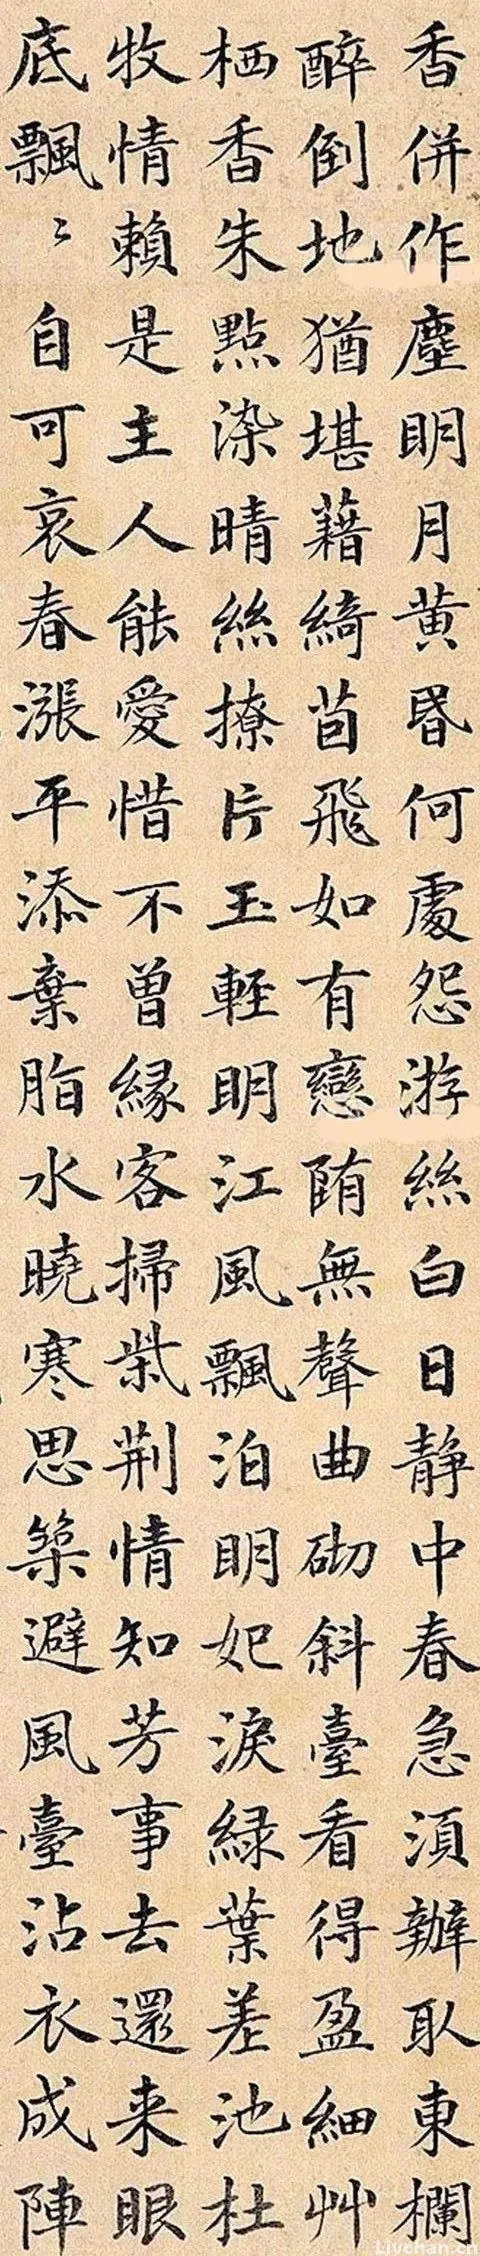 香併作塵明月黄昬何處怨游絲白日静中春急須辦取東欄
醉倒地猶堪藉綺茵飛如有戀墮無聲曲砌斜臺看得盈細艸
栖香朱點染晴絲撩片玉輕明江風飄泊明妃淚緑葉差池杜
牧情賴是主人能愛惜不曾緣客掃柴荆情知芳事去還来眼
底飄〻自可哀春漲平添棄脂水曉寒思築避風臺沾衣成陣